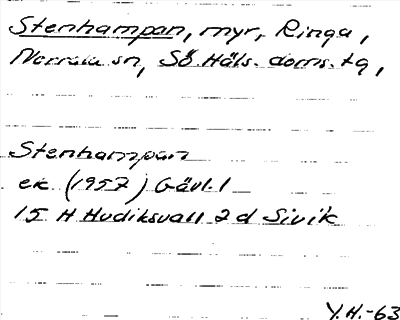 Stenhampan, myr, Ringa,
Norrala sn, Sö. Häls. doms. tg,
Stenhampan
ek (1957) Gävl. l
15 H Hudiksvall 2 d Sivik
Y.H.-63